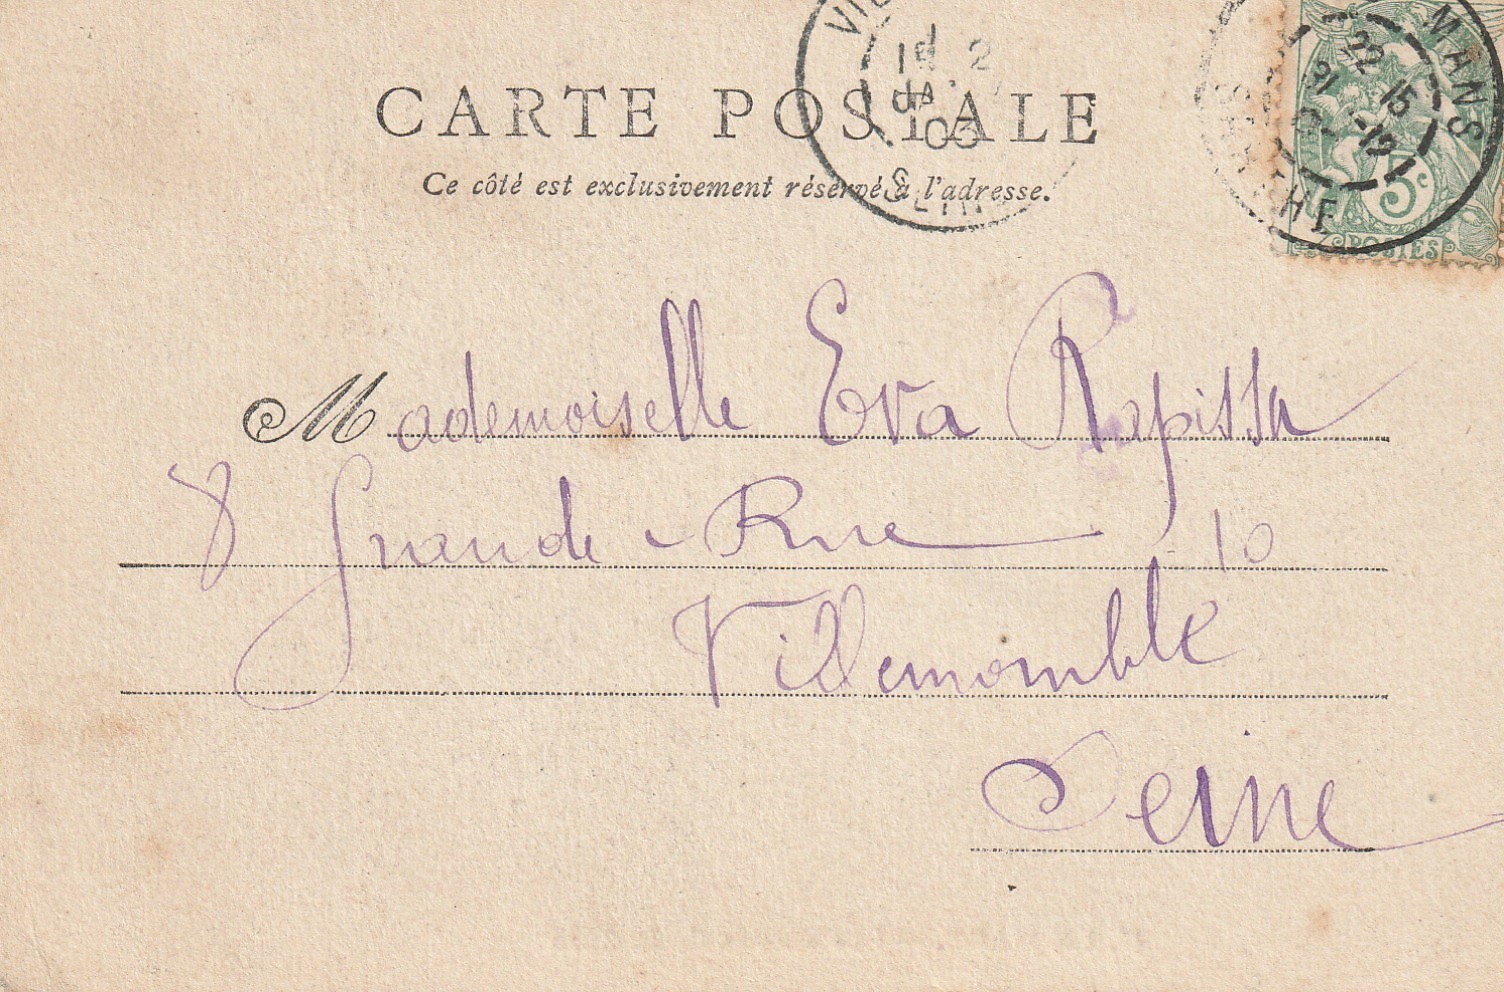 CARTE POSTALE
Ce côté est exclusivement réservé à l'adresse.
MANS
22 15
31 -12
SARTHE
5c
POSTES
2
JA
03
SEINE
Mademoiselle Eva Rapissa
8 Grande Rue 10
Villemomble
Seine